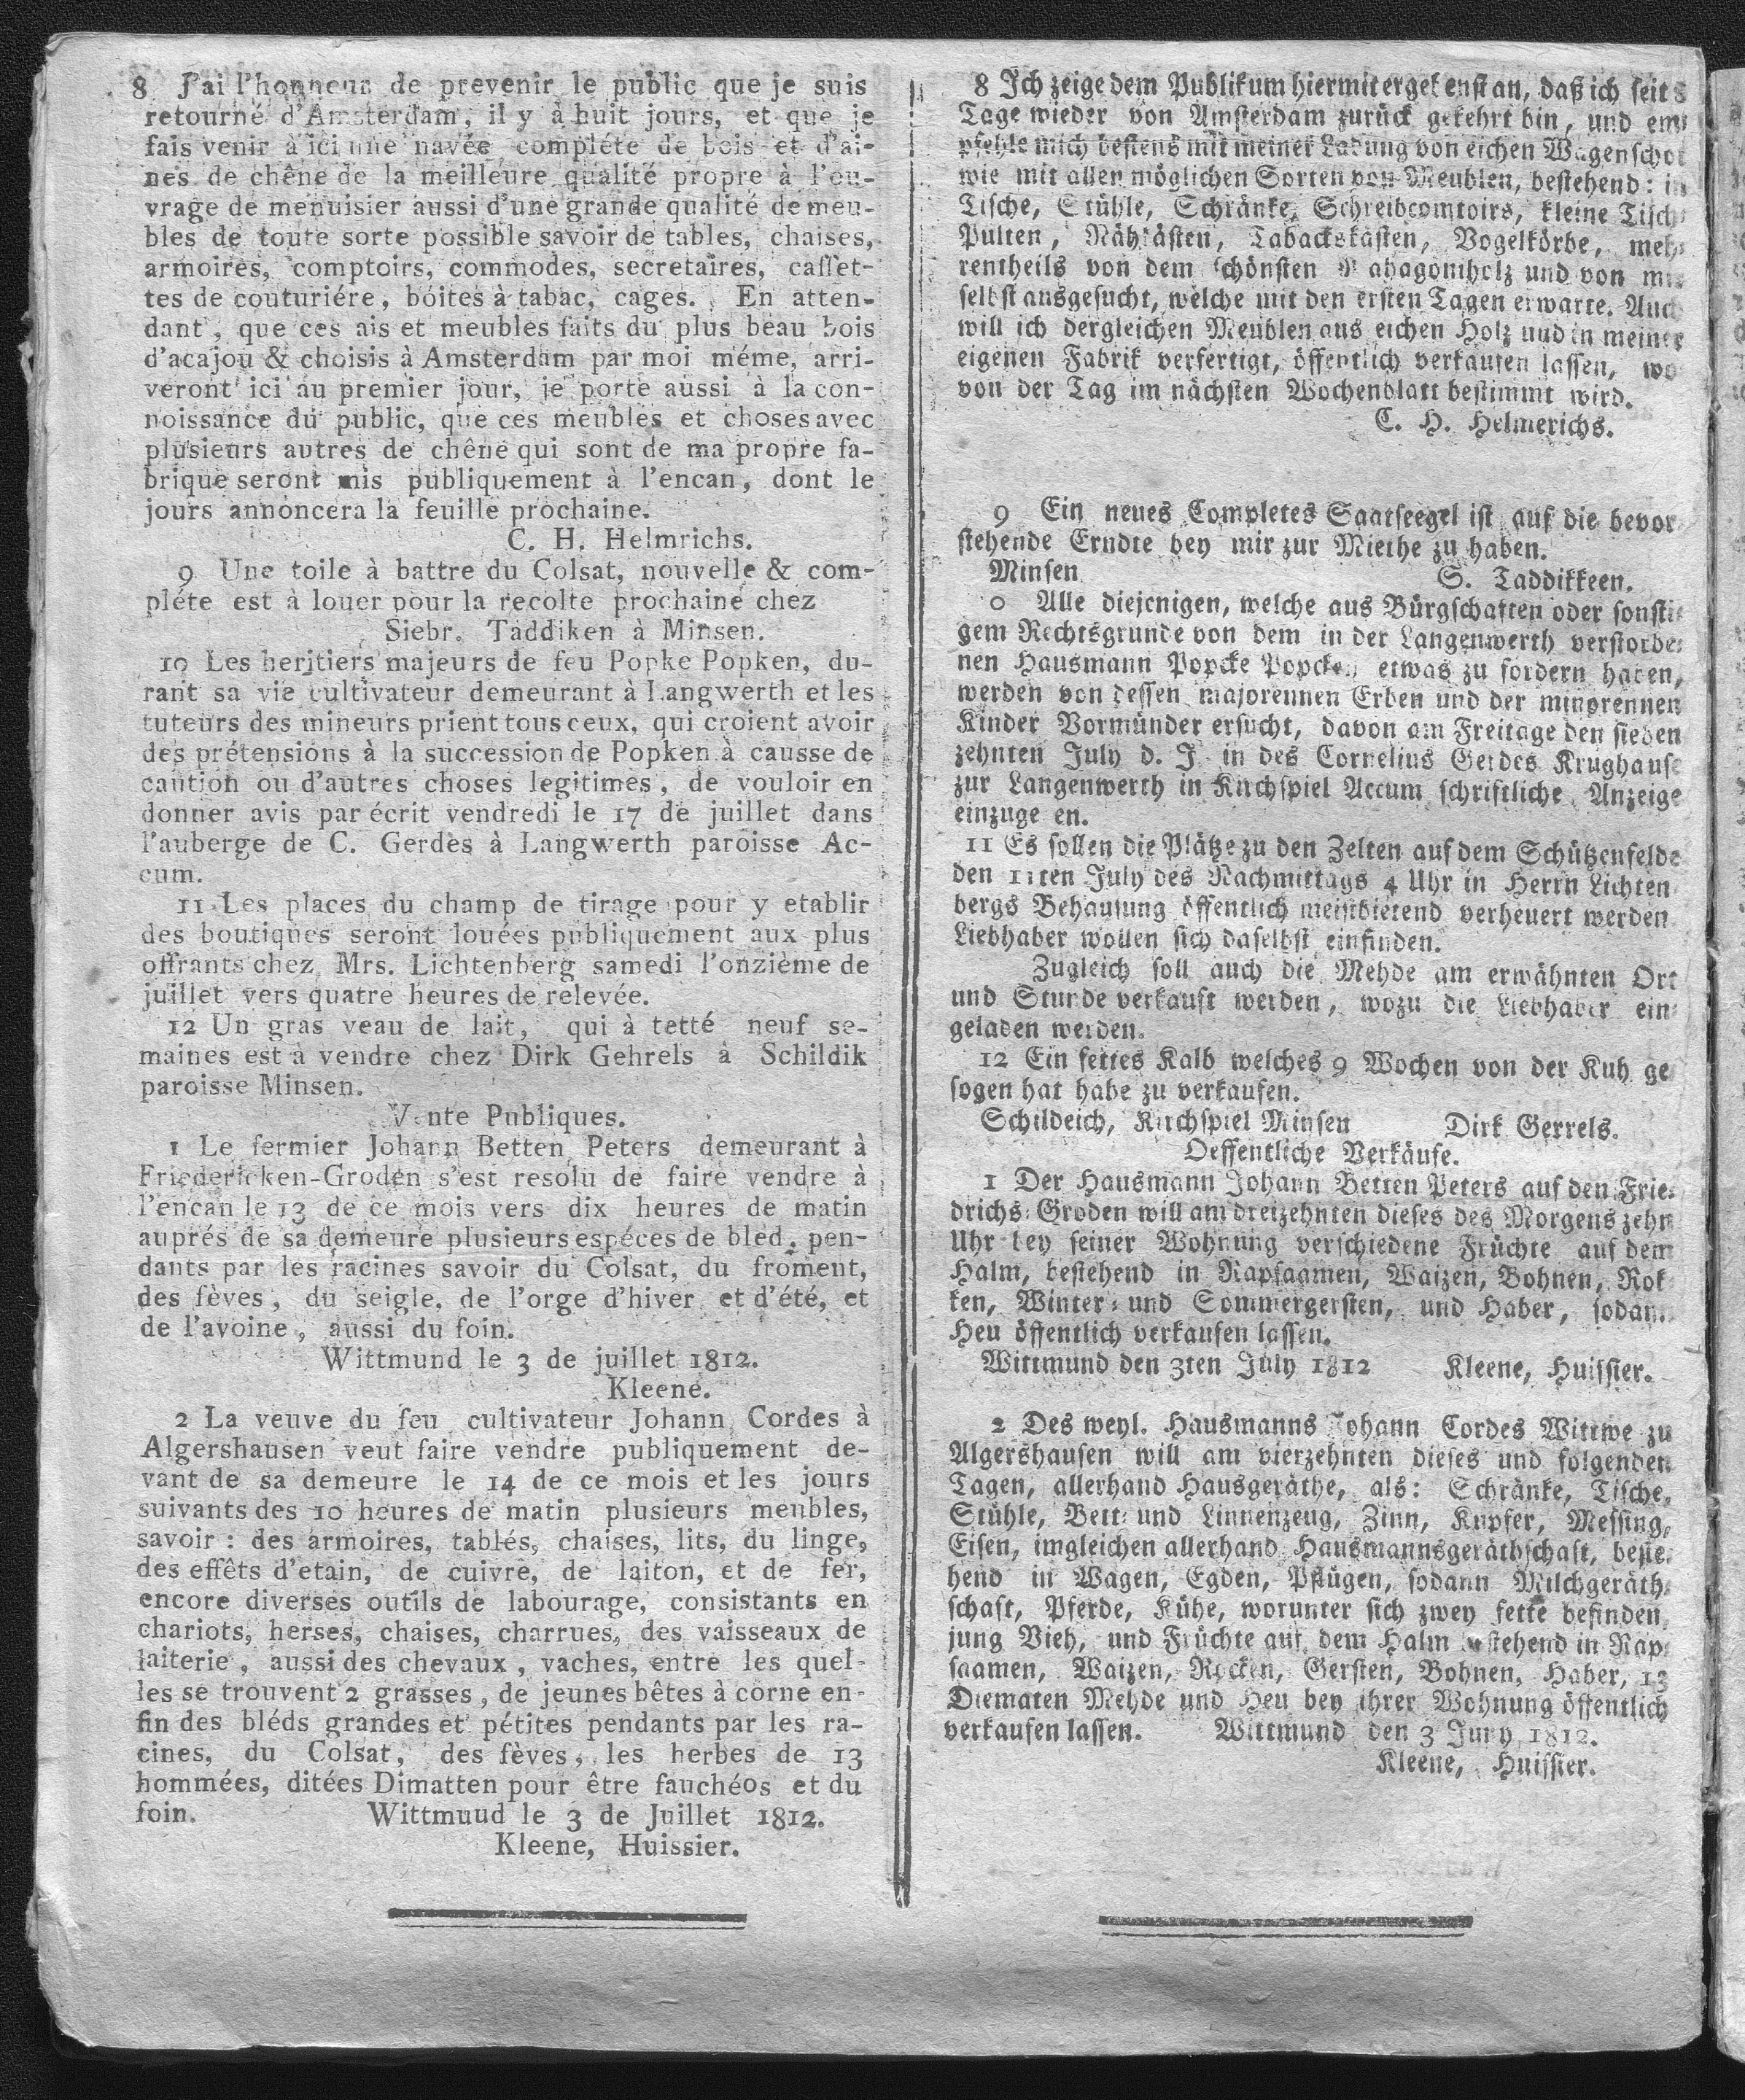 8 J'ai l'honneur de prevenir le public que je suis
retourné d'Amsterdam, il y à huit jours, et que je
fais venir à ici une navée compléte de bois et d'ai-
nes de chêne de la meilleure qualité propre à l'ou-
vrage de menuisier aussi d'une grande qualité de meu-
bles de toute sorte possible savoir de tables, chaises,
armoires, comptoirs, commodes, secretaires, casset-
tes de couturiére, bóites à tabac, cages. En atten-
dant, que ces ais et meubles faits du plus beau bois
d'acajou & choisis à Amsterdam par moi méme, arri-
veront ici au premier jour, je porte aussi à la con-
noissance du public, que ces meubles et choses avec
plusieurs autres de chêne qui sont de ma propre fa-
brique seront mis publiquement à l'encan, dont le
jours annoncera la feuille prochaine.
C. H. Helmrichs.
9 Une toile à battre du Colsat, nouvelle & com-
pléte est à louer pour la recolte prochaine chez
Siebr. Taddiken à Minsen.
10 Les heritiers majeurs de feu Popke Popken, du-
rant sa vie cultivateur demeurant à Langwerth et les
tuteurs des mineurs prient tous ceux, qui croient avoir
des prétensions à la succession de Popken à causse de
caution ou d'autres choses legitimes, de vouloir en
donner avis par écrit vendredi le 17 de juillet dans
l'auberge de C. Gerdes à Langwerth paroisse Ac-
cum.
11 Les places du champ de tirage pour y etablir
des boutiques seront louées publiquement aux plus
offrants chez Mrs. Lichtenberg samedi l'onzième de
juillet vers quatre heures de relevée.
12 Un gras veau de lait, qui à tetté neuf se-
maines est à vendre chez Dirk Gehrels à Schildik
paroisse Minsen.
Vente Publiques.
1 Le fermier Johann Betten Peters demeurant à
Friedericken-Groden s'est resolu de faire vendre à
l'encan le 13 de ce mois vers dix heures de matin
auprés de sa demeure plusieurs espéces de bled, pen-
dants par les racines savoir du Colsat, du froment,
des fèves, du seigle, de l'orge d'hiver et d'été, et
de l'avoine, aussi du foin.
Wittmund le 3 de juillet 1812.
Kleene.
2 La veuve du feu cultivateur Johann Cordes à
Algershausen veut faire vendre publiquement de-
vant de sa demeure le 14 de ce mois et les jours
suivants des 10 heures de matin plusieurs meubles,
savoir: des armoires, tablés, chaises, lits, du linge,
des effêts d'etain, de cuivre, de laiton, et de fer,
encore diverses outils de labourage, consistants en
chariots, herses, chaises, charrues, des vaisseaux de
laiterie, aussi des chevaux, vaches, entre les quel-
les se trouvent 2 grasses, de jeunes bêtes à corne en-
fin des bléds grandes et pétites pendants par les ra-
cines, du Colsat, des fèves, les herbes de 13
hommées, ditées Dimatten pour être fauchéos et du
foin. Wittmuud le 3 de Juillet 1812.
Kleene, Huissier.
8 Ich zeige dem Publikum hiermit ergebenst an, daß ich seit 8
Tage wieder von Amsterdam zurück gekehrt bin, und em-
pfehle mich bestens mit meiner Ladung von eichen Wagenschot
wie mit allen möglichen Sorten von Meublen, bestehend: in
Tische, Stühle, Schränke, Schreibcomtoirs, kleine Tisch-
Pulten, Nähkästen, Tabackskasten, Vogelkörbe, meh-
rentheils von dem schönsten Mahagoniholz und von mir
selbst ausgesucht, welche mit den ersten Tagen erwarte. Auch
will ich dergleichen Meublen aus eichen Holz und in meiner
eigenen Fabrik verfertigt, öffentlich verkaufen lassen, wo
von der Tag im nächsten Wochenblatt bestimmt wird.
C. H. Helmerichs.
9 Ein neues Completes Saatseegel ist auf die bevor
stehende Erndte bey mir zur Miethe zu haben.
Minsen S. Taddikkeen.
0 Alle diejenigen, welche aus Bürgschaften oder sonsti-
gem Rechtsgrunde von dem in der Langenwerth verstorbe-
nen Hausmann Popcke Popcken etwas zu fordern haben,
werden von dessen majorennen Erben und der minorennen
Kinder Vormünder ersucht, davon am Freitage den sieben
zehnten July d. J. in des Cornelius Gerdes Krughause
zur Langenwerth in Kirchspiel Accum schriftliche Anzeige
einzuge en.
11 Es sollen die Plätze zu den Zelten auf dem Schützenfelde
den 11ten July des Nachmittags 4 Uhr in Herrn Lichten
bergs Behausung öffentlich meistbietend verheuert werden
Liebhaber wollen sich daselbst einfinden.
Zugleich soll auch die Mehde am erwähnten Ort
und Stunde verkauft werden, wozu die Liebhaber ein-
geladen werden.
12 Ein fettes Kalb welches 9 Wochen von der Kuh ge
sogen hat habe zu verkaufen.
Schildeich, Kirchspiel Minsen Dirk Gerrels.
Oeffentliche Verkäufe.
1 Der Hausmann Johann Betten Peters auf den Frie-
drichs-Groden will am dreizehnten dieses des Morgens zehn
Uhr bey seiner Wohnung verschiedene Früchte auf dem
Halm, bestehend in Rapsaamen, Waizen, Bohnen, Rok
ken, Winter- und Sommergersten, und Haber, sodann
Heu öffentlich verkaufen lassen.
Wittmund den 3ten July 1812 Kleene, Huissier.
2 Des weyl. Hausmanns Johann Cordes Wittwe zu
Algershausen will am vierzehnten dieses und folgenden
Tagen, allerhand Hausgeräthe, als: Schränke, Tische,
Stühle, Bett- und Linnenzeug, Zinn, Kupfer, Messing,
Eisen, imgleichen allerhand Hausmannsgeräthschaft, beste-
hend in Wagen, Egden, Pflügen, sodann Milchgeräth-
schaft, Pferde, Kühe, worunter sich zwey fette befinden,
jung Vieh, und Früchte auf dem Halm bestehend in Rap-
saamen, Waizen, Rocken, Gersten, Bohnen, Haber, 13
Diematen Mehde und Heu bey ihrer Wohnung öffentlich
verkaufen lassen. Wittmund den 3 July 1812.
Kleene, Huissier.